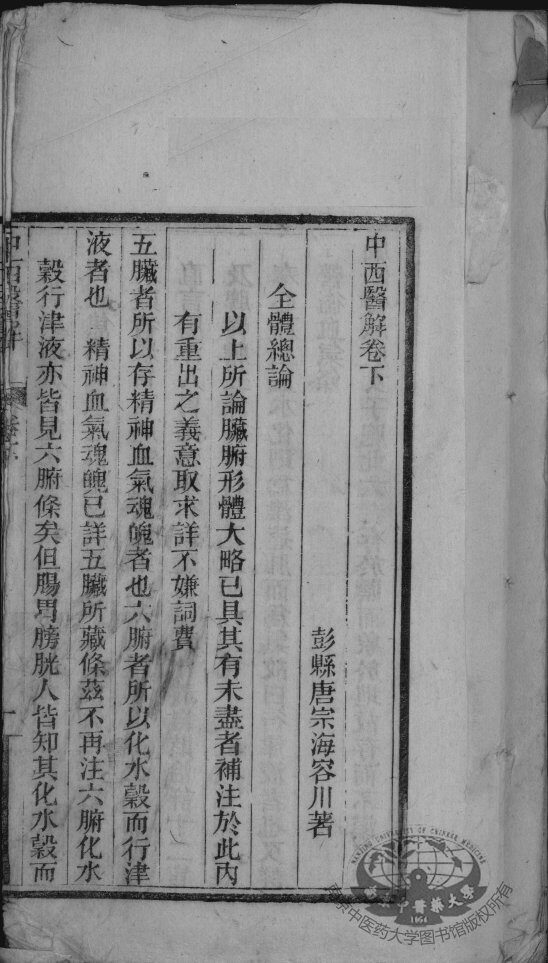 中西醫解卷下
彭縣唐宗海容川著
全體總論
以上所論臟腑形體大略已具其有未盡者補注於此內
有重出之義意取求詳不嫌詞費
五臟者所以存精神血氣魂魄者也六腑者所以化水穀而行津
液者也 精神血氣魂魄已詳五臟所藏條茲不再注六腑化水
穀行津液亦皆見六腑條矣但腸胃膀胱人皆知其化水穀而
中西醫解 卷下
一
NANJING UNIVERSITY OF CHINESE MEDICINE
南京中醫藥大學
1954
南京中医药大学图书馆版权所有